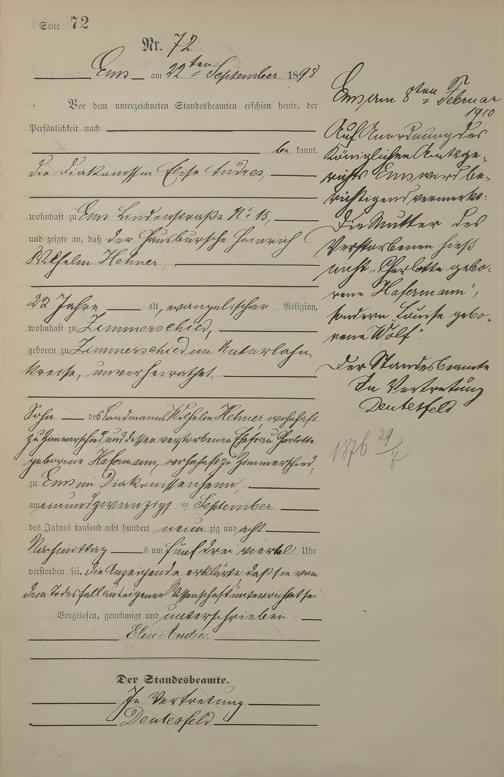 Seite 72
Nr. 72.
Ems am 22ten September 1898
Vor dem unterzeichneten Standesbeamten erschien heute, der
Persönlichkeit nach
be kannt,
die Diakonissin Elise Andres,
wohnhaft zu Ems Lindenstraße No 15,
und zeigte an, daß der Hausbursche Heinrich
Wilhelm Hehner,
22 Jahre alt, evangelischer Religion,
wohnhaft zu Zimmerschied,
geboren zu Zimmerschied im Unterlahn-
kreise, unverheirathet,
Sohn des Landmanns Wilhelm Hehner, wohnhaft
zu Zimmerschied und dessen verstorbenen Ehefrau Charlotte
geborene Hafermann, wohnhaft zu Zimmerschied,
zu Ems im Diakonissenheim,
am einundzwanzigsten September
des Jahres tausend acht hundert neun zig und acht
Nachmittags um fünf drei viertel Uhr
verstorben sei. Die Anzeigende erklärte daß sie von
dem Todesfall aus eigener Wissenschaft unterrichtet sei
Vorgelesen, genehmigt und unterschrieben.
Elise Andres.
Der Standesbeamte.
In Vertretung
Deutesfeld
Ems, am 8ten Februar
1910
Auf Anordnung des
Königlichen Amtsge-
richts Ems wird be-
richtigend vermerkt:
Die Mutter des
Verstorbenen hieß
nicht „Charlotte gebo-
rene Hafermann",
sondern „Louise gebo-
rene Wolf".
Der Standesbeamte
In Vertretung
Deutesfeld
1876 29/8